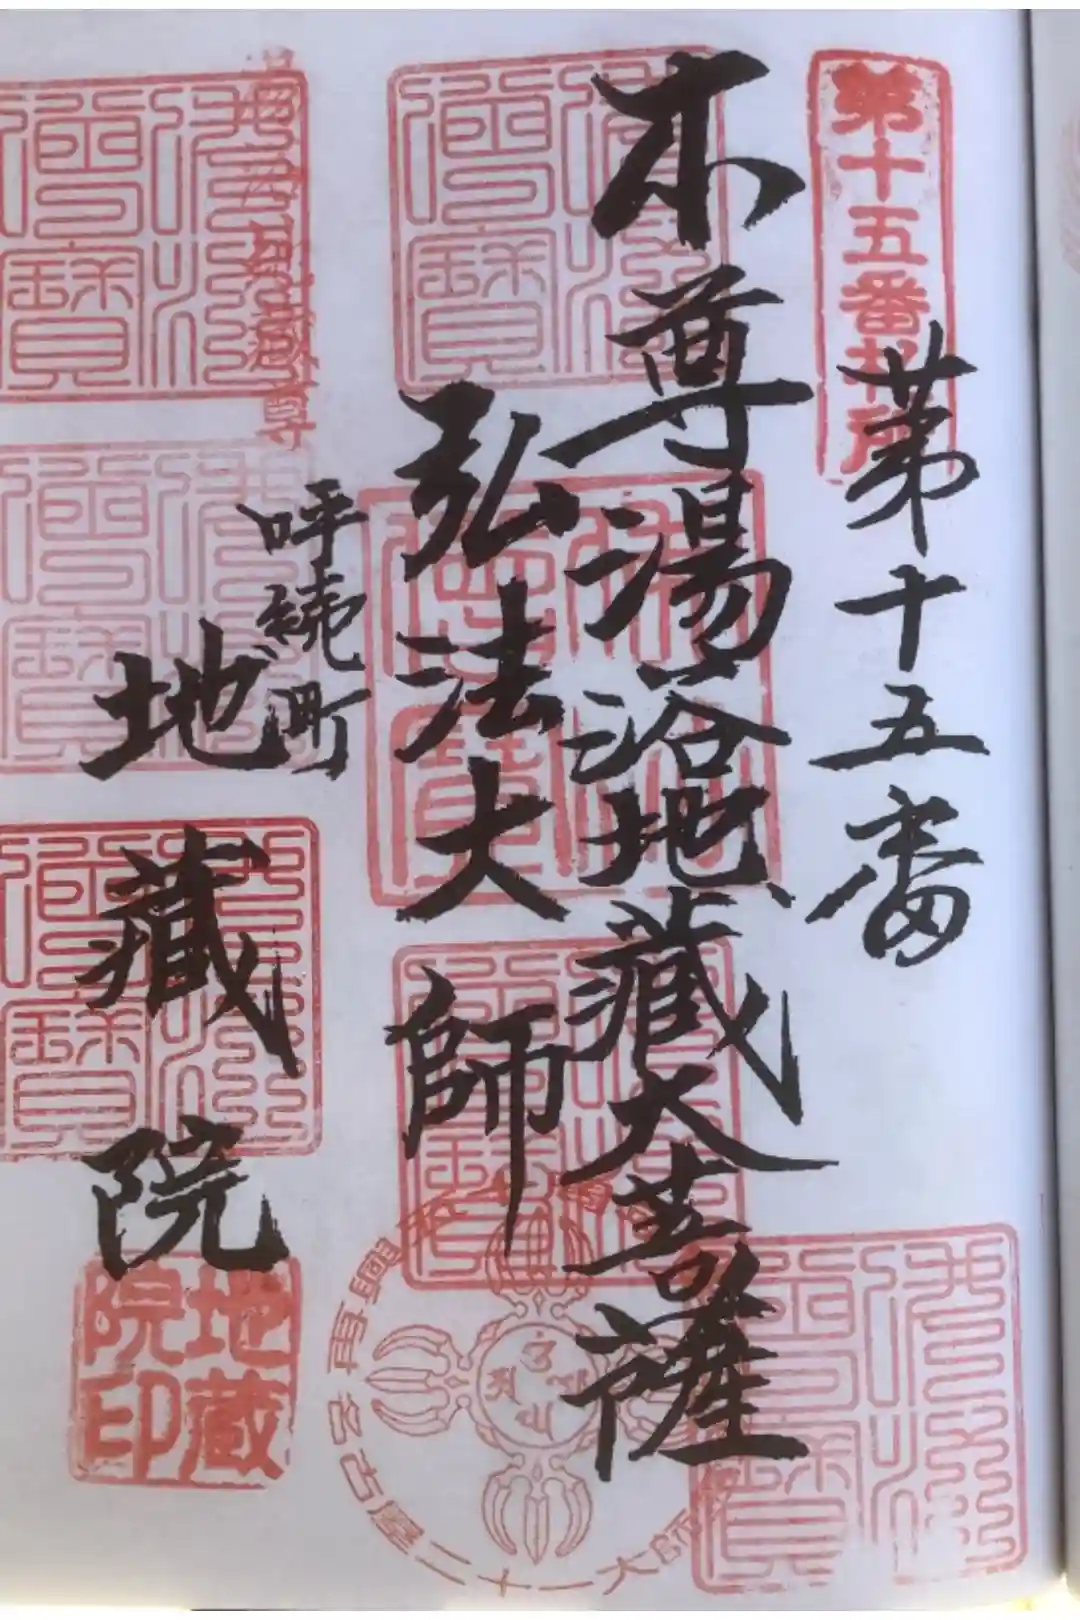 第十五番
第十五番札所
本尊湯浴地藏大菩薩
弘法大師
呼続町
地藏院
佛法僧寶
地蔵院印
再興
名古屋二十一大師